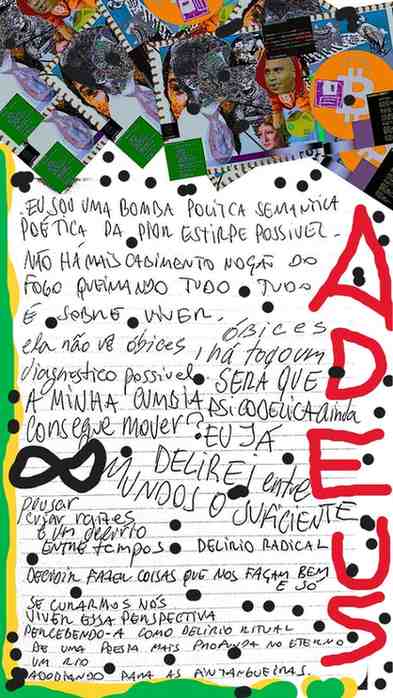 .EU SOU UMA BOMBA POLÍTCA SEMANTICA
POÉTICA DA PIOR ESTIRPE POSSIVEL.
NÃO HÁ MAIS CABIMENTO NOÇÃO DO
FOGO QUEIMANDO TUDO TUDO
É SOBRE VIVER.
ela não vê óbices ÓBICES
há todo um
diagnostico possivel. SERÁ QUE
A MINHA CUMBIA PSICODELICA ainda
consegue mover? EU JÁ
DELIREI entre
MUNDOS O SUFICIENTE
pousar
criar raízes
é um delirio
ENTRE tempos DELIRIO RADICAL
DECIDIR FAZER COISAS QUE NOS FAÇAM BEM
E SÓ
SE CURARMOS NÓS
VIVER ESSA PERSPECTIVA
PERCEBENDO-A COMO DELÍRIO RITUAL
DE UMA POESIA MAIS PROFUNDA NO ETERNO
UM RIO
PARA AS
ADEUS